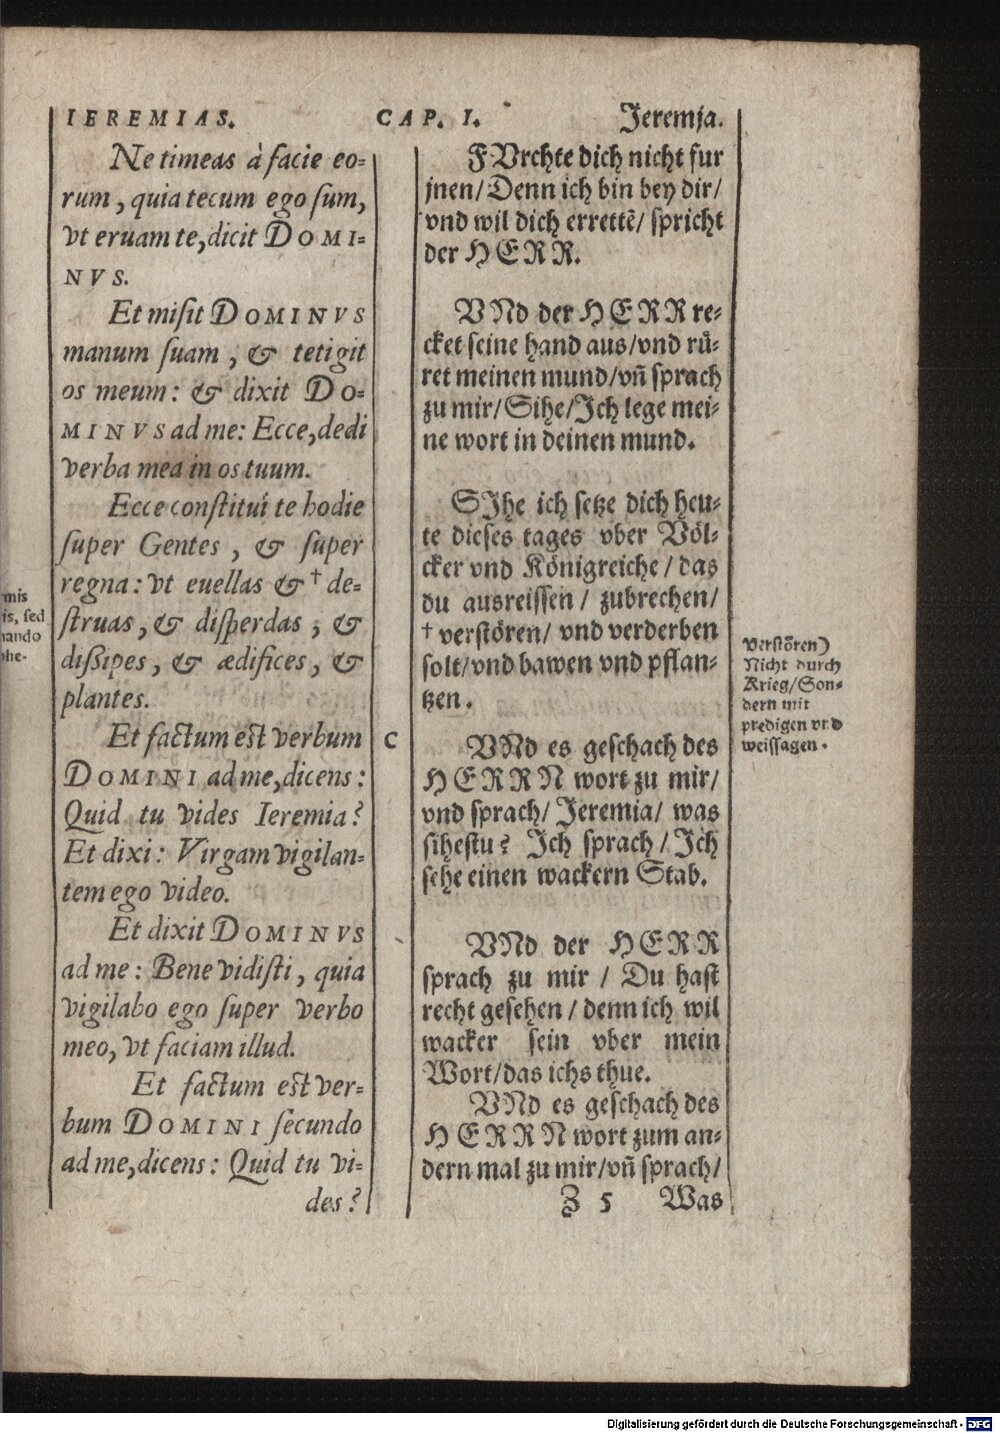 IEREMIAS.
CAP. I.
Jeremja.
Ne timeas à facie eo-
rum, quia tecum ego ſum,
vt eruam te, dicit DOMI-
NVS.
Et miſit DOMINVS
manum ſuam, & tetigit
os meum: & dixit DO-
MINVS ad me: Ecce, dedi
verba mea in os tuum.
Ecce conſtitui te hodie
ſuper Gentes, & ſuper
regna: vt euellas & † de-
ſtruas, & diſperdas, &
diſsipes, & ædifices, &
plantes.
Et factum eſt verbum
DOMINI ad me, dicens:
Quid tu vides Ieremia?
Et dixi: Virgam vigilan-
tem ego video.
Et dixit DOMINVS
ad me: Bene vidiſti, quia
vigilabo ego ſuper verbo
meo, vt faciam illud.
Et factum eſt ver-
bum DOMINI ſecundo
ad me, dicens: Quid tu vi-
des?
C
FVrchte dich nicht fur
jnen/ Denn ich bin bey dir/
vnd wil dich errettẽ/ ſpricht
der HERR.
VNd der HERR re-
cket ſeine hand aus/ vnd rů-
ret meinen mund/ vñ ſprach
zu mir/ Sihe/ Ich lege mei-
ne wort in deinen mund.
SIhe ich ſetze dich heu-
te dieſes tages vber Völ-
cker vnd Königreiche/ das
du ausreiſſen/ zubrechen/
† verſtören/ vnd verderben
ſolt/ vnd bawen vnd pflan-
tzen.
VNd es geſchach des
HERRN wort zu mir/
vnd ſprach/ Jeremia/ was
ſiheſtu? Ich ſprach/ Ich
ſehe einen wackern Stab.
VNd der HERR
ſprach zu mir/ Du haſt
recht geſehen/ denn ich wil
wacker ſein vber mein
Wort/ das ichs thue.
VNd es geſchach des
HERRN wort zum an-
dern mal zu mir/ vñ ſprach/
Z 5 Was
Verſtören)
Nicht durch
Krieg/ Son-
dern mit
predigen vnd
weiſſagen.
mis
is, ſed
nando
phe-
Digitalisierung gefördert durch die Deutsche Forschungsgemeinschaft - DFG